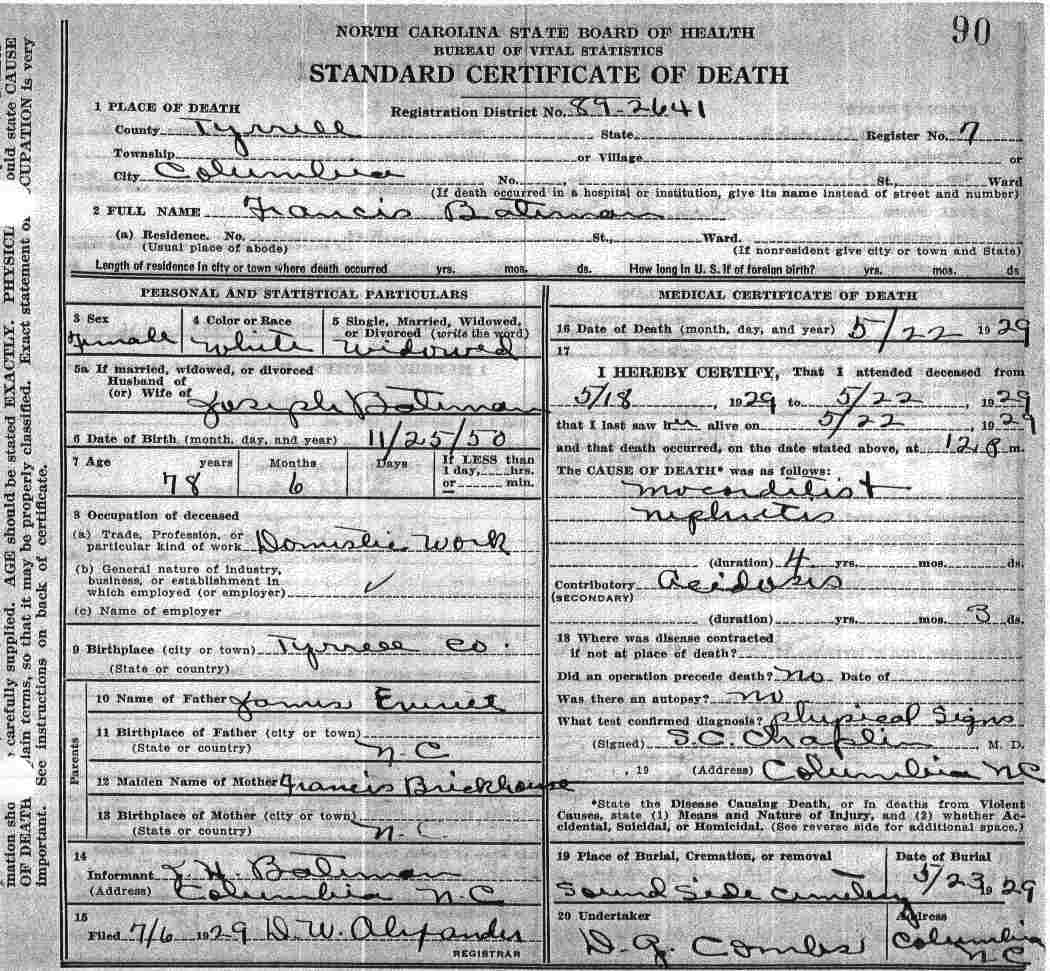 90
NORTH CAROLINA STATE BOARD OF HEALTH
BUREAU OF VITAL STATISTICS
STANDARD CERTIFICATE OF DEATH
1 PLACE OF DEATH
Registration District No. 89-2641
County Tyrrell State Register No. 7
Township or Village or
City Columbia No. , St., Ward
(If death occurred in a hospital or institution, give its name instead of street and number)
2 FULL NAME Francis Bateman
(a) Residence. No. St., Ward.
(Usual place of abode) (If nonresident give city or town and State)
Length of residence in city or town where death occurred yrs. mos. ds. How long in U. S. if of foreign birth? yrs. mos. ds
PERSONAL AND STATISTICAL PARTICULARS
3 Sex 4 Color or Race 5 Single, Married, Widowed,
or Divorced (write the word)
Female White Widowed
5a If married, widowed, or divorced
Husband of
(or) Wife of Joseph Bateman
6 Date of Birth (month, day, and year) 11/25/50
7 Age years Months Days If LESS than
1 day, hrs.
or min.
78 6
8 Occupation of deceased
(a) Trade, Profession, or
particular kind of work Domestic work
(b) General nature of industry,
business, or establishment in
which employed (or employer) ✓
(c) Name of employer
9 Birthplace (city or town) Tyrrell Co.
(State or country)
Parents
10 Name of Father James
11 Birthplace of Father (city or town)
(State or country) N-C
12 Maiden Name of Mother Francis Brickhouse
13 Birthplace of Mother (city or town)
(State or country) N-C
14
Informant H. Bateman
(Address) Columbia N-C
15
Filed 7/6 1929 D.W. Alexander
REGISTRAR
MEDICAL CERTIFICATE OF DEATH
16 Date of Death (month, day, and year) 5/22 1929
17
I HEREBY CERTIFY, That I attended deceased from
5/18, 1929 to 5/22, 1929
that I last saw her alive on 5/22, 1929
and that death occurred, on the date stated above, at 12 m.
The CAUSE OF DEATH* was as follows:
Mocarditis +
Nephritis
(duration) 4 yrs. mos. ds.
Contributory Acidosis
(SECONDARY)
(duration) yrs. mos. 3 ds.
18 Where was disease contracted
if not at place of death?
Did an operation precede death? No Date of
Was there an autopsy? No
What test confirmed diagnosis? Physical Signs
(Signed) S.C. Chaplin M. D.
, 19 (Address) Columbia NC
*State the Disease Causing Death, or in deaths from Violent
Causes, state (1) Means and Nature of Injury, and (2) whether Ac-
cidental, Suicidal, or Homicidal. (See reverse side for additional space.)
19 Place of Burial, Cremation, or removal Date of Burial
Sound Side Cemetery 5/23 1929
20 Undertaker Address
Combs Columbia
N-C
mation sho carefully supplied. AGE should be stated EXACTLY. PHYSICI ould state CAUSE
OF DEATH lain terms, so that it may be properly classified. Exact statement o CUPATION is very
important. See instructions on back of certificate.